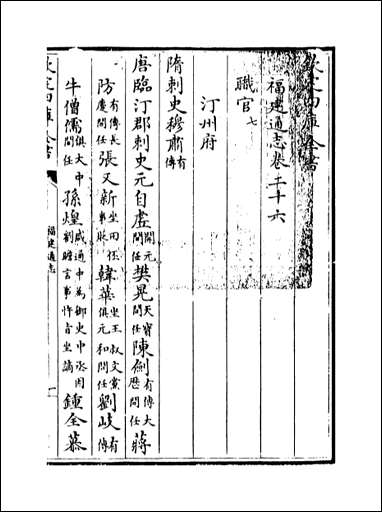 欽定四庫全書
福建通志卷二十六
職官七
汀州府
隋刺史穆肅有傳
唐臨汀郡刺史元自虛開元間任樊晃天寶間任陳劍有傳大厯間任蔣
防有傳長慶間任張又新坐田伾事貶韓華坐王叔文黨俱元和間任劉岐有
牛僧儒俱大中間任孫煌咸通中為御史中丞因劉瞻言事忤旨坐謫鍾全慕
欽定四庫全書
福建通志
一